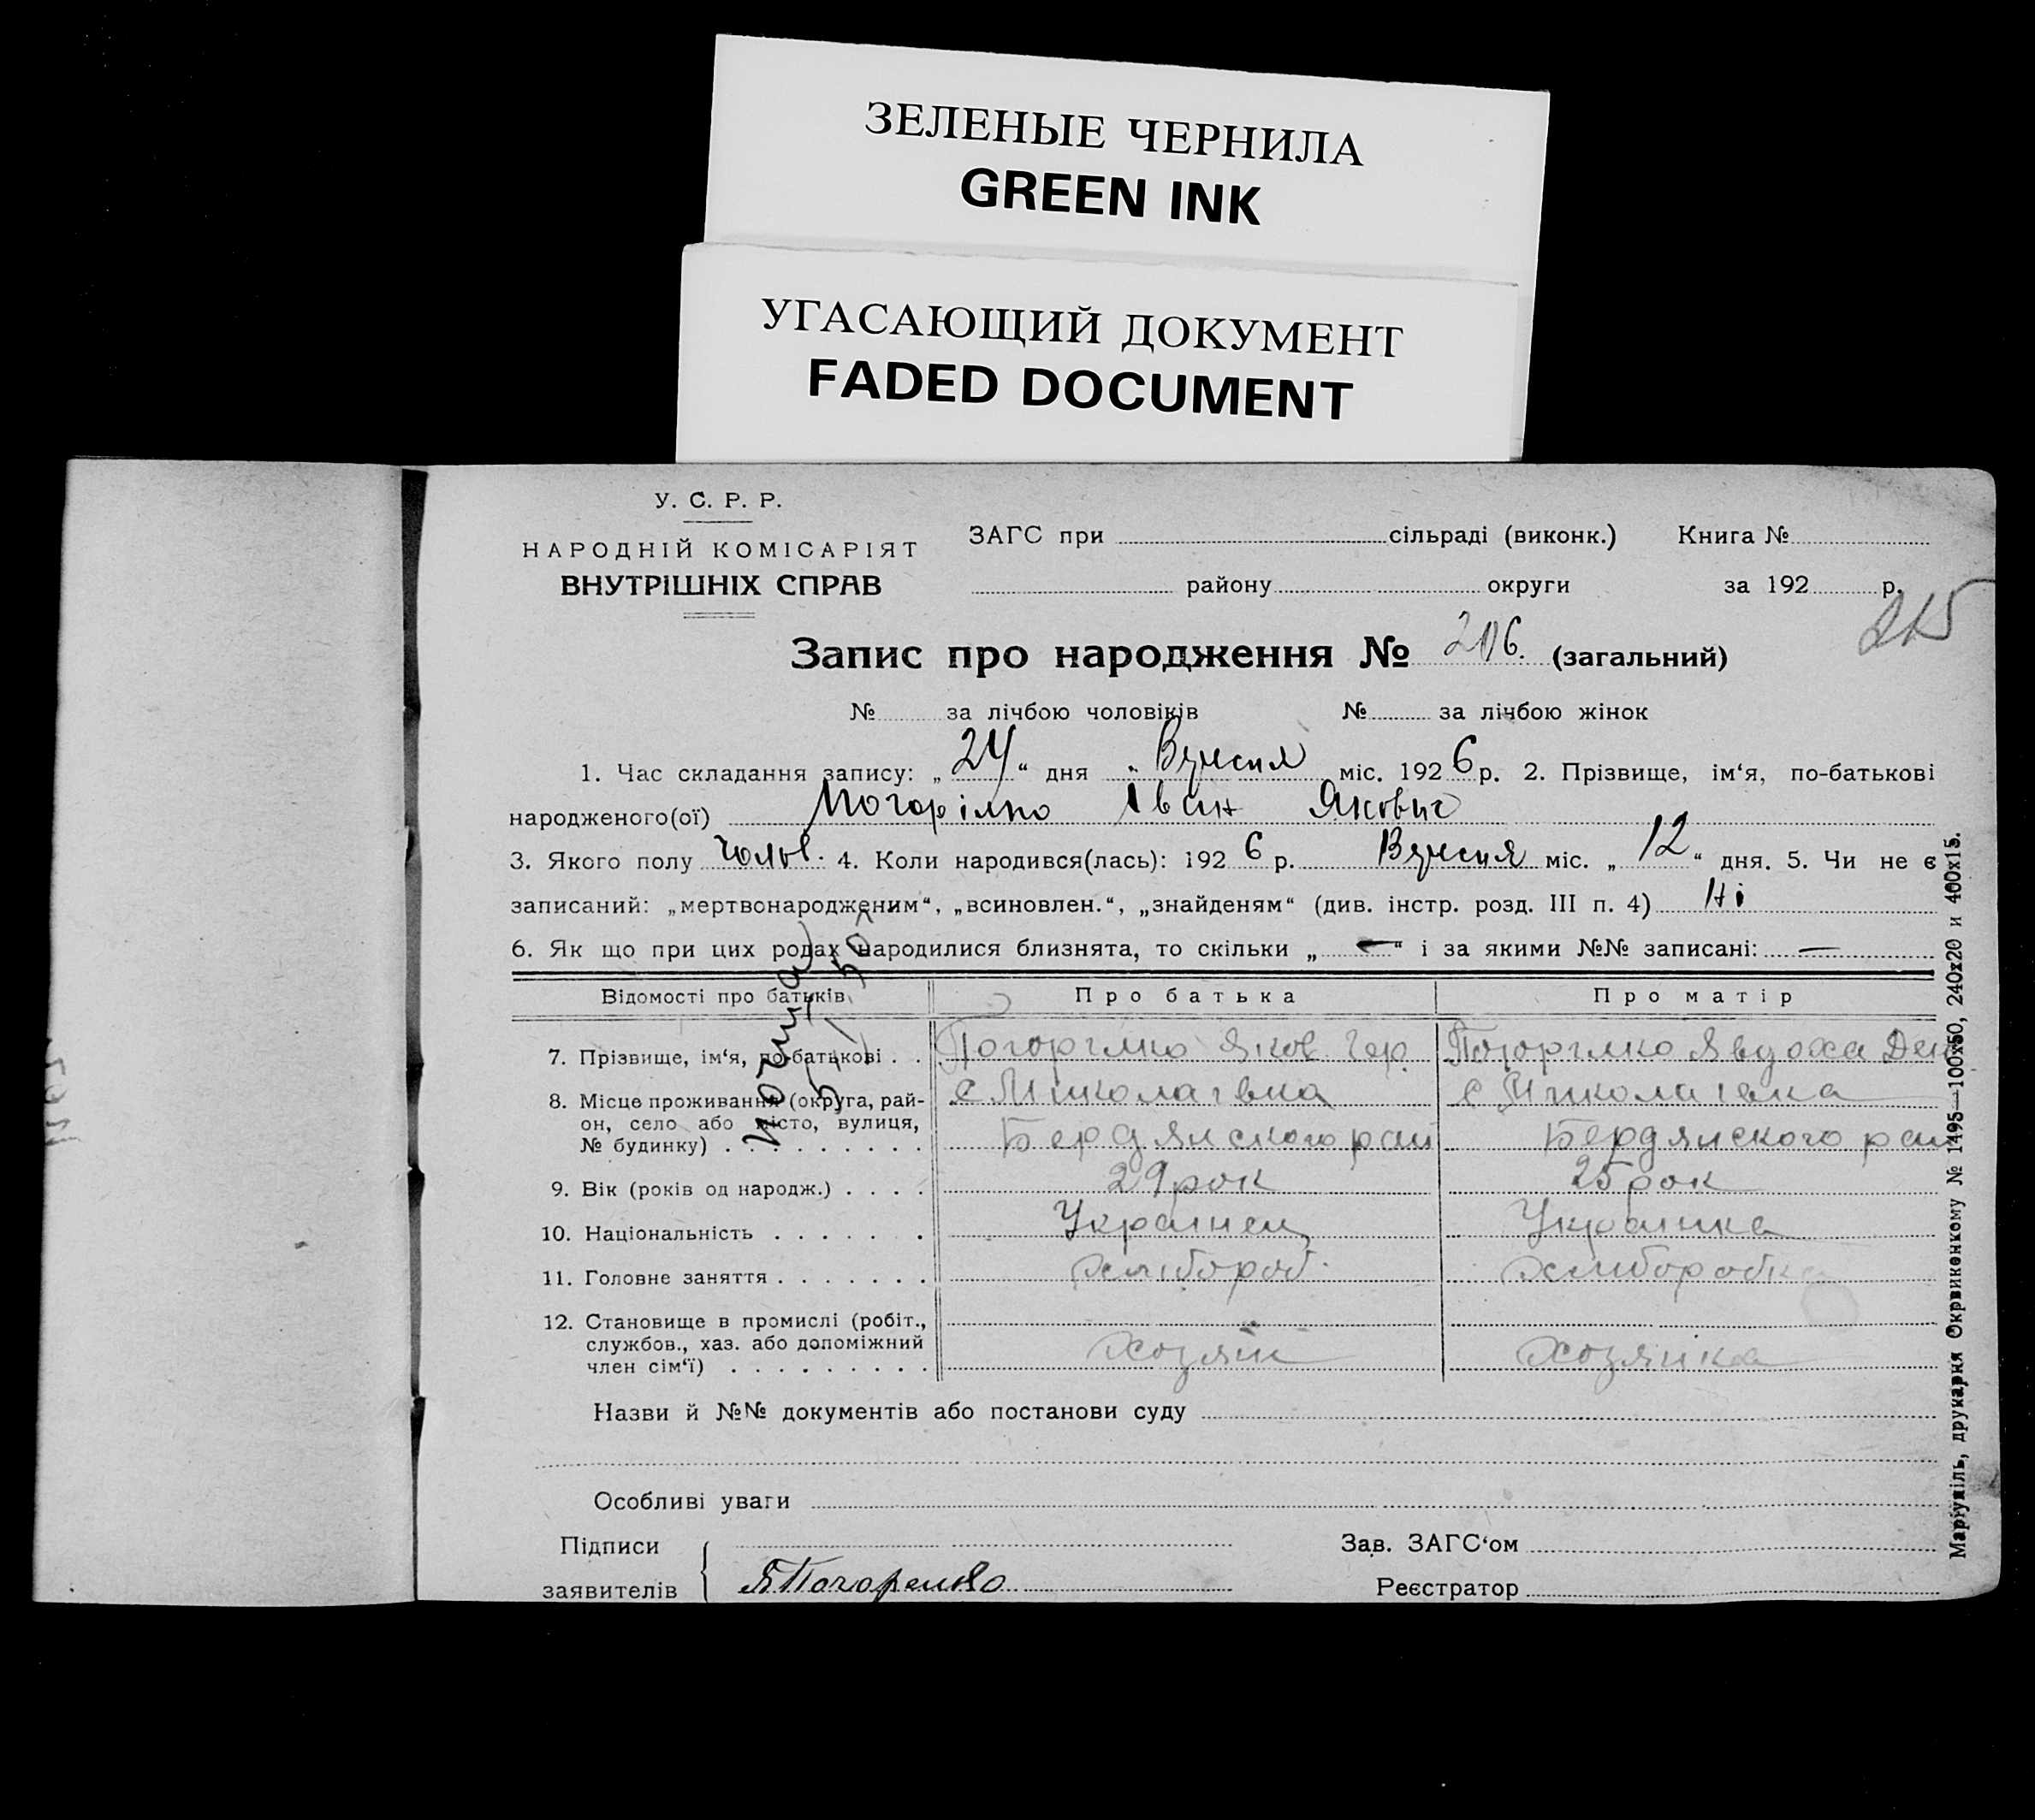 ЗЕЛЕНЫЕ ЧЕРНИЛА
GREEN INK
УГАСАЮЩИЙ ДОКУМЕНТ
FADED DOCUMENT
У. С. Р. Р.
НАРОДНІЙ КОМІСАРІЯТ
ВНУТРІШНІХ СПРАВ
ЗАГС при сільраді (виконк.) Книга №
району округи за 192 р.
215
Запис про народження № 206. (загальний)
№ за лічбою чоловіків № за лічбою жінок
1. Час складання запису: „24“ дня „Вересня міс. 1926 р. 2. Прізвище, ім‘я, по-батькові
народженого(ої) Погорілко Іван Якович
3. Якого полу чолов. 4. Коли народився(лась): 1926 р. Вересня міс. „12“ дня. 5. Чи не є
записаний: „мертвонародженим“, „всиновлен.“, „знайденям“ (див. інстр. розд. III п. 4) Ні
6. Як що при цих родах народилися близнята, то скільки „—“ і за якими №№ записані: —
Відомості про батьків Про батька Про матір
7. Прізвище, ім‘я, по-батькові . . Погорілко Яков Гер. Погорілко Явдоха Ден
8. Місце проживання (округа, рай- с Миколаівка с Миколаівка
он, село або місто, вулиця,
№ будинку) . . . . . . . . . Бердянского рай Бердянского рай
9. Вік (років од народж.) . . . . 29 рок 25 рок
10. Національність . . . . . . Украінец Украінка
11. Головне заняття . . . . . . . хлібороб. хлиборобка
12. Становище в промислі (робіт.,
службов., хаз. або допоміжний хозяїн хозяйка
член сім‘ї) . . . . . . . . .
Назви й №№ документів або постанови суду
Особливі уваги
Підписи Зав. ЗАГС‘ом
заявителів Я Погорелко Реєстратор
Маріупіль, друкарня Окрвиконкому № 1495—100х50, 240х20 и 400х15.